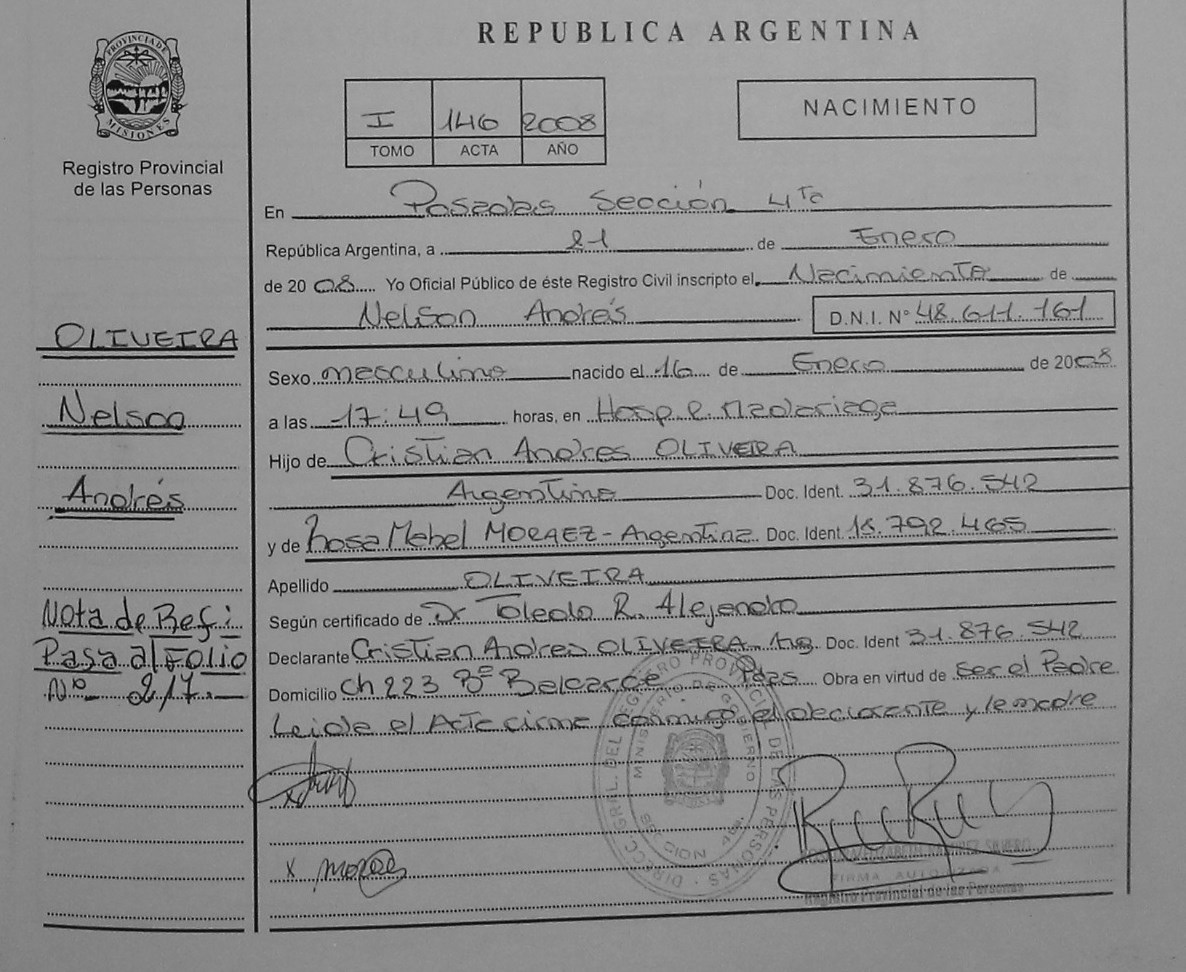 PROVINCIA DE
MISIONES
Registro Provincial
de las Personas
OLIVEIRA
Nelson
Andrés
Nota de Ref i
Pasa al Folio
Nº 217.-
REPUBLICA ARGENTINA
I 146 2008
TOMO ACTA AÑO
NACIMIENTO
En Posadas Sección 4ta
República Argentina, a 21 de Enero
de 20 08 Yo Oficial Público de éste Registro Civil inscripto el Nacimiento de
Nelson Andrés D.N.I. Nº 48.611.161
Sexo masculino nacido el 16 de Enero de 2008
a las 17:49 horas, en Hosp R. Madariaga
Hijo de Cristian Andres OLIVEIRA
Argentino Doc. Ident. 31.876.542
y de Rosa Mabel MORAEZ - Argentina Doc. Ident. 18.792.465
Apellido OLIVEIRA
Según certificado de Dr Toledo R. Alejandro
Declarante Cristian Andres OLIVEIRA Arg. Doc. Ident 31.876.542
Domicilio Ch 223 Bº Balcarce Pdas Obra en virtud de ser el Padre
Leida el Acta firma conmigo el declarante y la madre
DIRECC. GRAL. DEL REGISTRO PROVINCIAL DE LAS PERSONAS
MINISTERIO DE GOBIERNO
x Moraes
FIRMA AUTORIZADA
Registro Provincial de las Personas